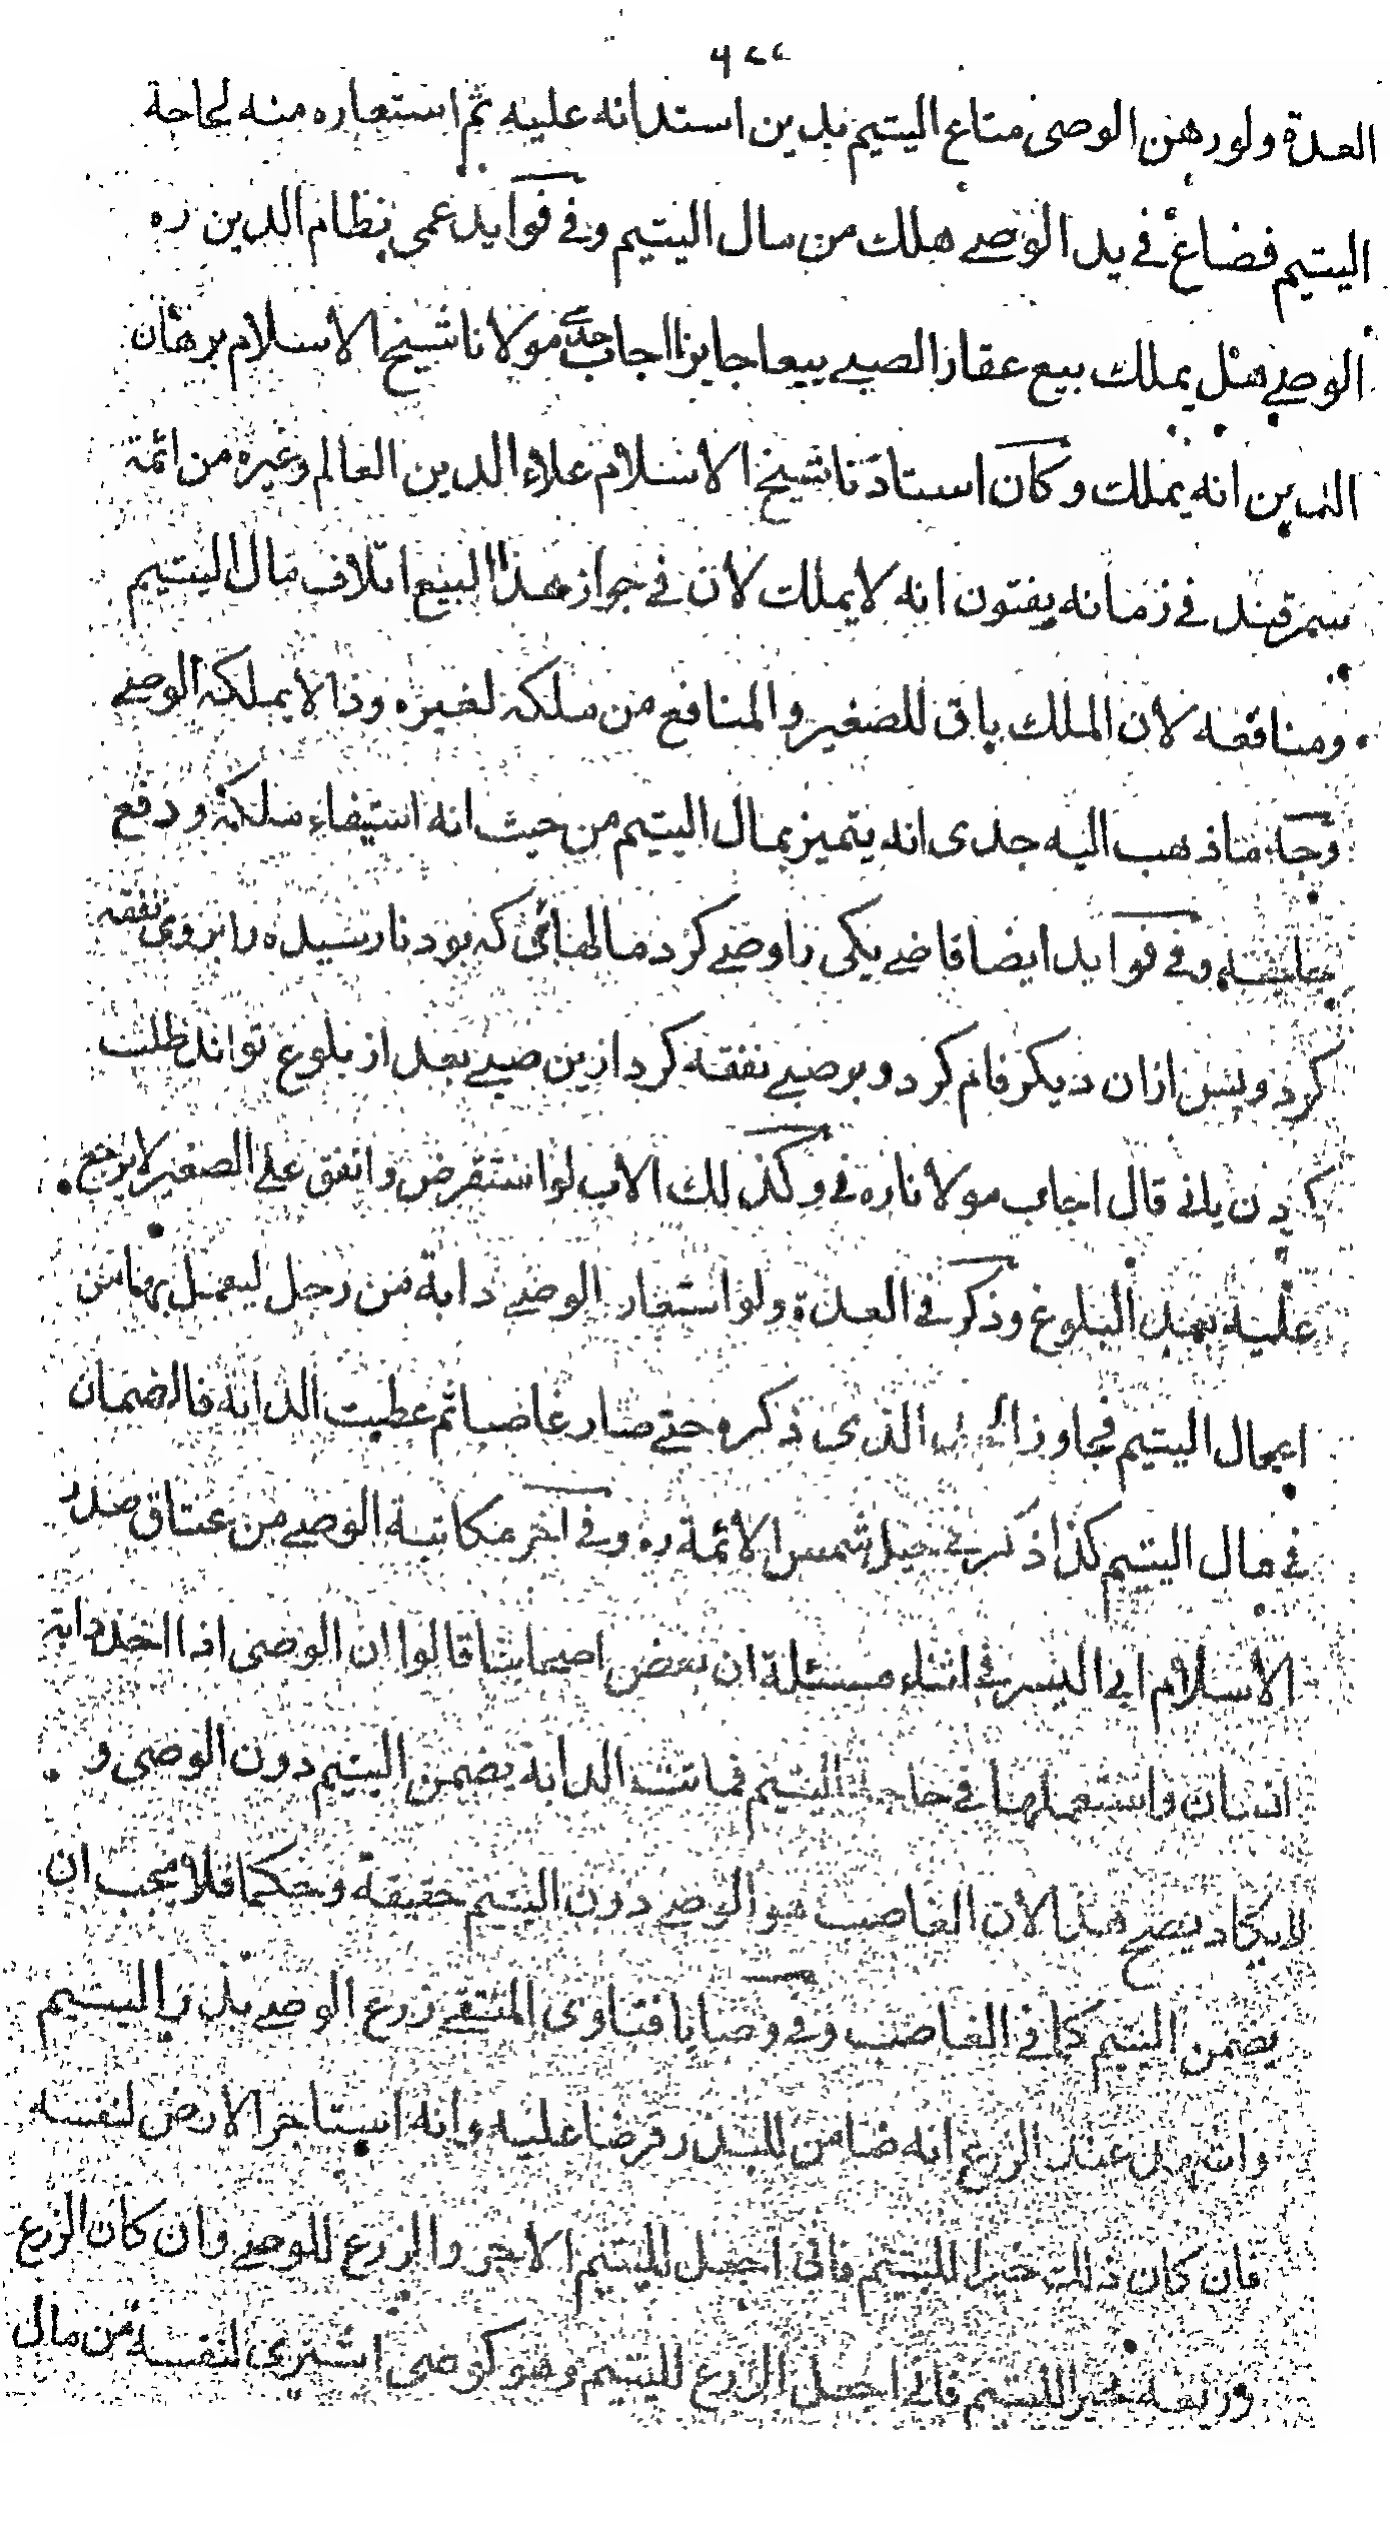 ٩٤٤
العدة ولو رهن الوصى متاع اليتيم بدين استدانه عليه ثم استعاره منه لحاجة
اليتيم فضاع في يد الوصي هلك من مال اليتيم وفي فوايد عمى نظام الدين ره
الوصي هل يملك بيع عقار الصبي بيعا جايزا اجاب جدى مولانا شيخ الاسلام برهان
الدين انه يملك وكان استادنا شيخ الاسلام علاء الدين العالم وغيره من ائمة
سمرقند في زمانه يفتون انه لا يملك لان في جواز هذا البيع اتلاف مال اليتيم
ومنافعه لان الملك باق للصغير والمنافع من ملكه لغيره وذا لا يملكه الوصي
وجه ما ذهب اليه جدى انه يتميز بمال اليتيم من حيث انه استيفاء ملكه ودفع
وفي فوايد ايضا قاضي يكى را وصي كرد مالهائى كه بود نارسيده را بروى نفقه
كرد وپس ازان ديكر قايم كرد وبر صبي نفقه كرد ازين صبي بعد از بلوغ تواند طلب
كردن يا نى قال اجاب مولانا ره ني وكذلك الاب لو استقرض وانفق على الصغير لا يرجع
عليه بعد البلوغ وذكر في العدة ولو استعار الوصي دابة من رجل ليعمل بها من
اعمال اليتيم فجاوز الذى ذكره حتى صار غاصبا ثم عطبت الدابة فالضمان
في مال اليتيم كذا ذكر في حيل شمس الائمة ره وفي آخر مكاتبة الوصي من عتاق صدر
الاسلام ابي اليسر في اثناء مسئلة ان بعض اصحابنا قالوا ان الوصى اذا اخذ دابة
انسان واستعملها في حاجة اليتيم فماتت الدابة يضمن اليتيم دون الوصى و
لا يكاد يصح هذا لان الغاصب هو الوصي دون اليتيم حقيقة وحكما فلا يجب ان
يضمن اليتيم كما في الغاصب وفي وصايا فتاوى المنتقى زرع الوصي بذر اليتيم
واشهد عند الزرع انه ضامن للبذر قرضا عليه وانه استاجر الارض لنفسه
فان كان ذلك خيرا لليتيم فاني اجعل لليتيم الاجر والزرع للوصي وان كان الزرع
وريعه خيرا لليتيم فاني اجعل الزرع لليتيم وهو كوصى اشترى لنفسه من مال